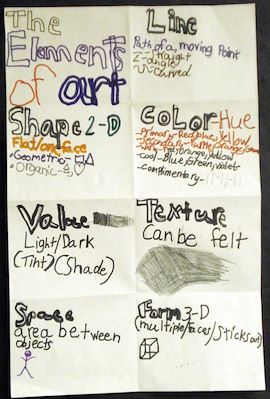 The
Elements
of art
Line
Path of a, moving Point
Z-angle
Curved
Shape 2-D
Flat/one face
-Geometric-
-Organic-
Color Hue
Primary-Red, blue, Yellow
Orange, Yellow
cool-Blue, Green, violet-
Complimentary-
Value
Light/Dark
(Tint)(Shade)
Texture
Can be felt
Space
area between
objects
Form 3-D
(multiple/faces/sticks out)